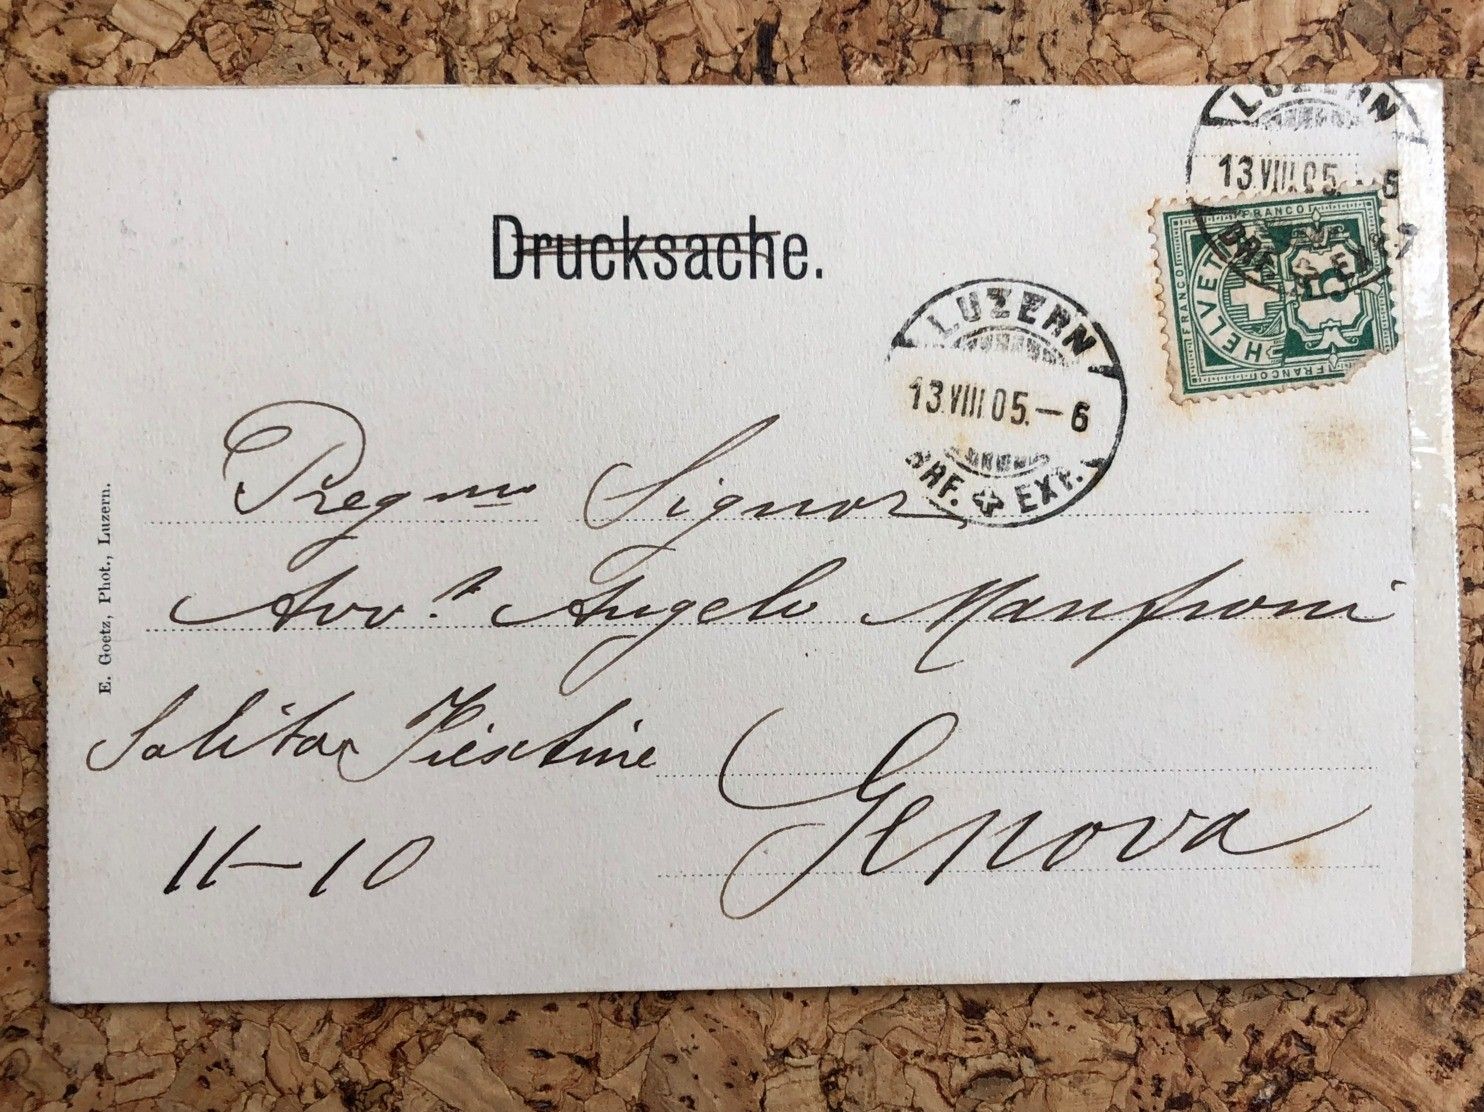 LUZERN
13.VIII.05.-6
BRF. EXP.
FRANCO
FRANCO HELVETIA 5
FRANCO
Drucksache.
LUZERN
13.VIII 05.-6
BRF. EXP.
Pregmo Signor
Avv.to Angelo Manfroni
Salita
Genova
11-10
E. Goetz, Phot., Luzern.